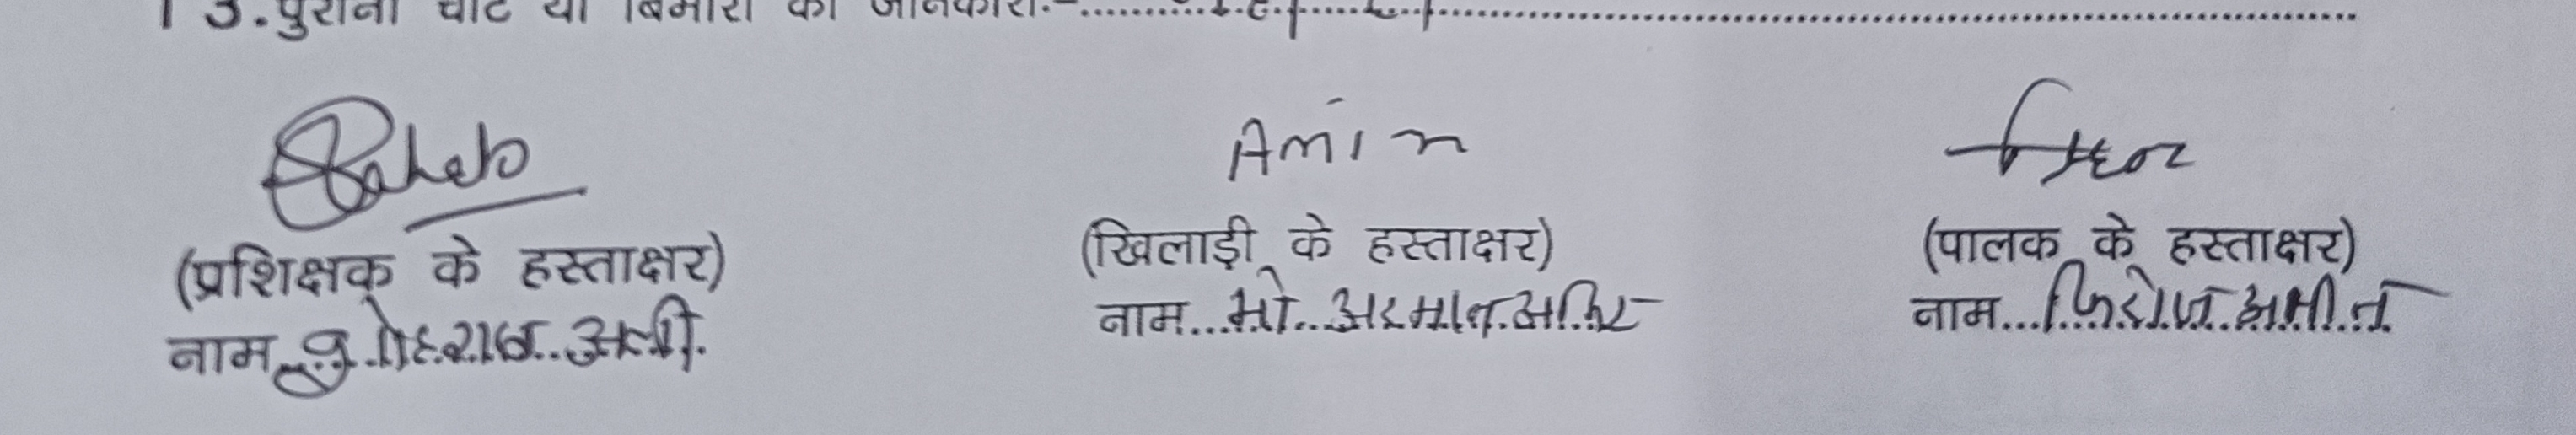 13. पुरानी चोट या बिमारी की जानकारी:-
Saheb Amin
(प्रशिक्षक के हस्ताक्षर) (खिलाड़ी के हस्ताक्षर) (पालक के हस्ताक्षर)
नाम अली नाम मो अरमान नाम फिरोज अमीन